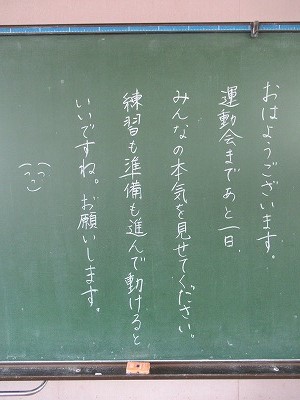 おはようございます。
運動会まであと一日。
みんなの本気を見せてください。
練習も準備も進んで動けると
いいですね。お願いします。